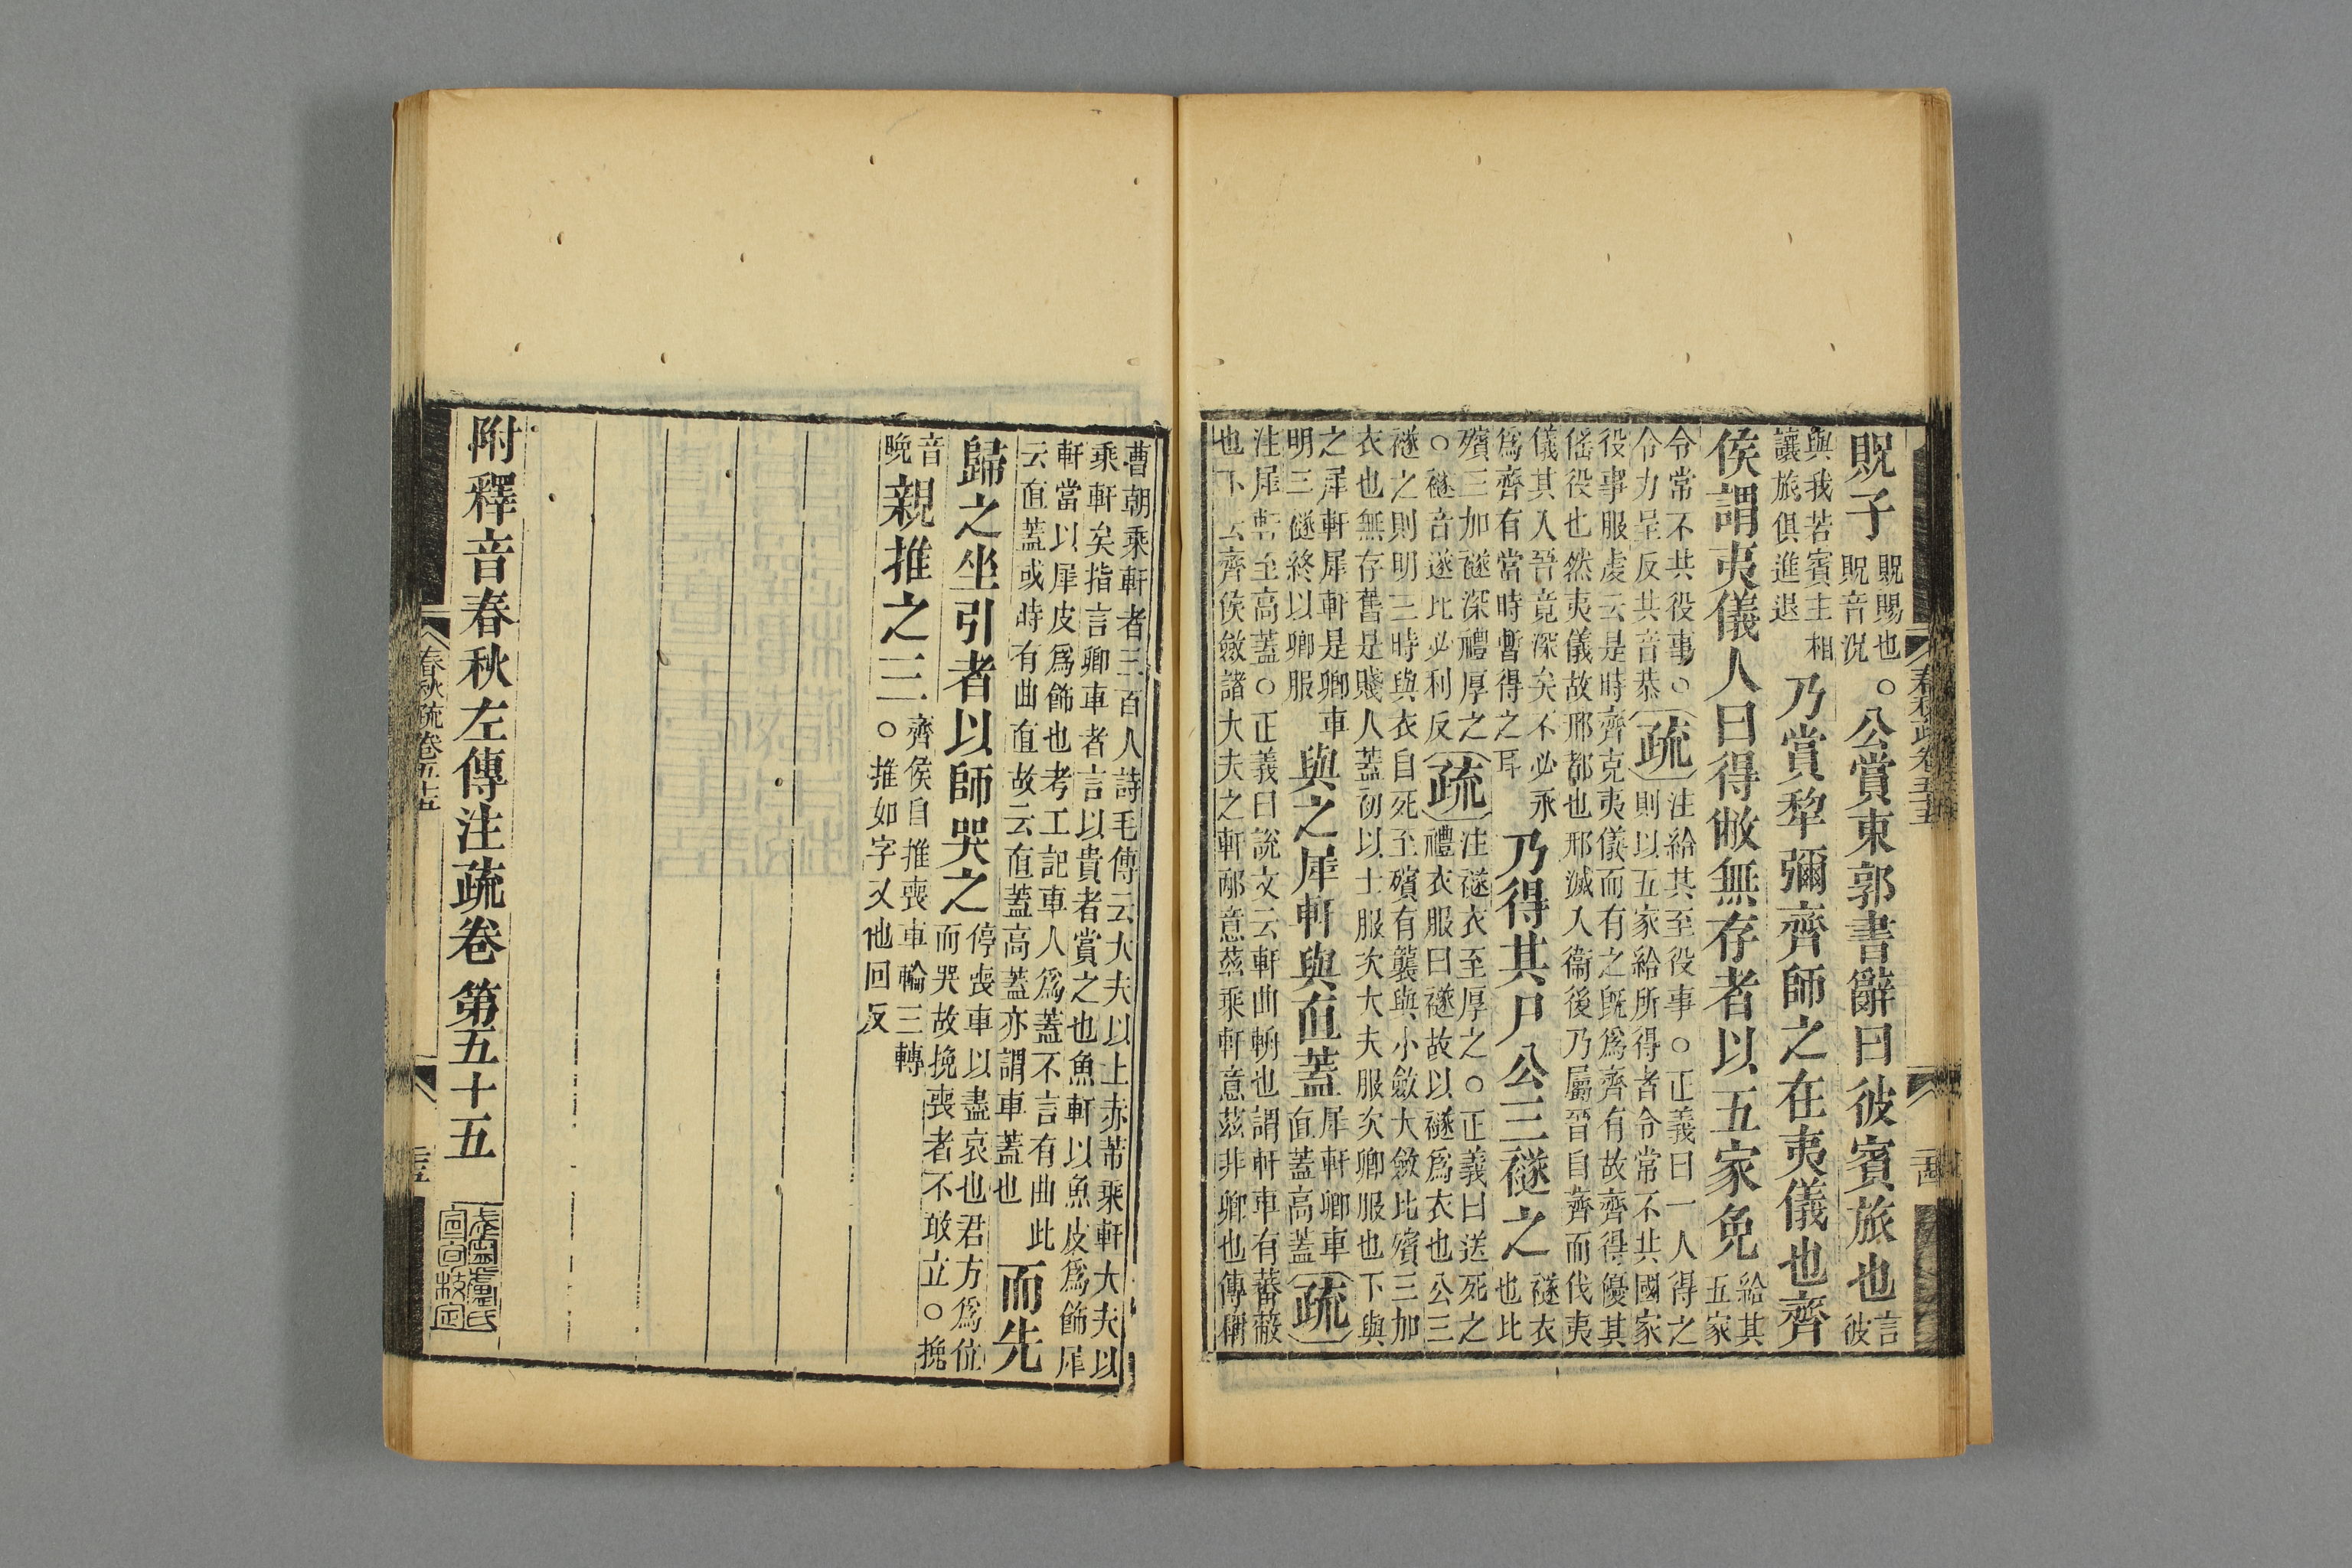 貺子
貺賜也
貺音況
○公賞東郭書辭曰彼賓旅也
言
彼
與我若賓主相
讓旅俱進退
乃賞犂彌齊師之在夷儀也齊
侯謂夷儀人曰得敝無存者以五家免
給其
五家
令常不共役事○
令力呈反共音恭
疏
注給其至役事○正義曰一人得之
則以五家給所得者令常不共國家
役事服虔云是時齊克夷儀而有之旣爲齊有故齊得優其
傜役也然夷儀故邢都也邢滅入衞後乃屬晉自齊而伐夷
儀其入晉竟深矣不必永
爲齊有當時暫得之耳
乃得其尸公三襚之
襚衣
也比
殯三加襚深禮厚之
○襚音遂比必利反
疏
注襚衣至厚之○正義曰送死之
禮衣服曰襚故以襚爲衣也公三
襚之則明三時與衣自死至殯有襲與小斂大斂比殯三加
衣也無存舊是賤人蓋初以士服次大夫服次卿服也下與
之犀軒犀軒是卿車
明三襚終以卿服
與之犀軒與直蓋
犀軒卿車
直蓋高蓋
疏
注犀軒至高蓋○正義曰說文云軒曲輈也謂軒車有蕃蔽
也下云齊侯斂諸大夫之軒邴意茲乘軒意茲非卿也傳稱
曹朝乘軒者三百人詩毛傳云大夫以上赤芾乘軒大夫以
乘軒矣指言卿車者言以貴者賞之也魚軒以魚皮爲飾犀
軒當以犀皮爲飾也考工記車人爲蓋不言有曲此
云直蓋或時有曲直故云直蓋高蓋亦謂車蓋也
而先
歸之坐引者以師哭之
停喪車以盡哀也君方爲位
而哭故挽喪者不敢立○挽
音
晚
親推之三
齊侯自推喪車輪三轉
○推如字又他回反
附釋音春秋左傳注疏卷第五十五
武寧盧氏
宣旬校定
春秋疏卷五十五